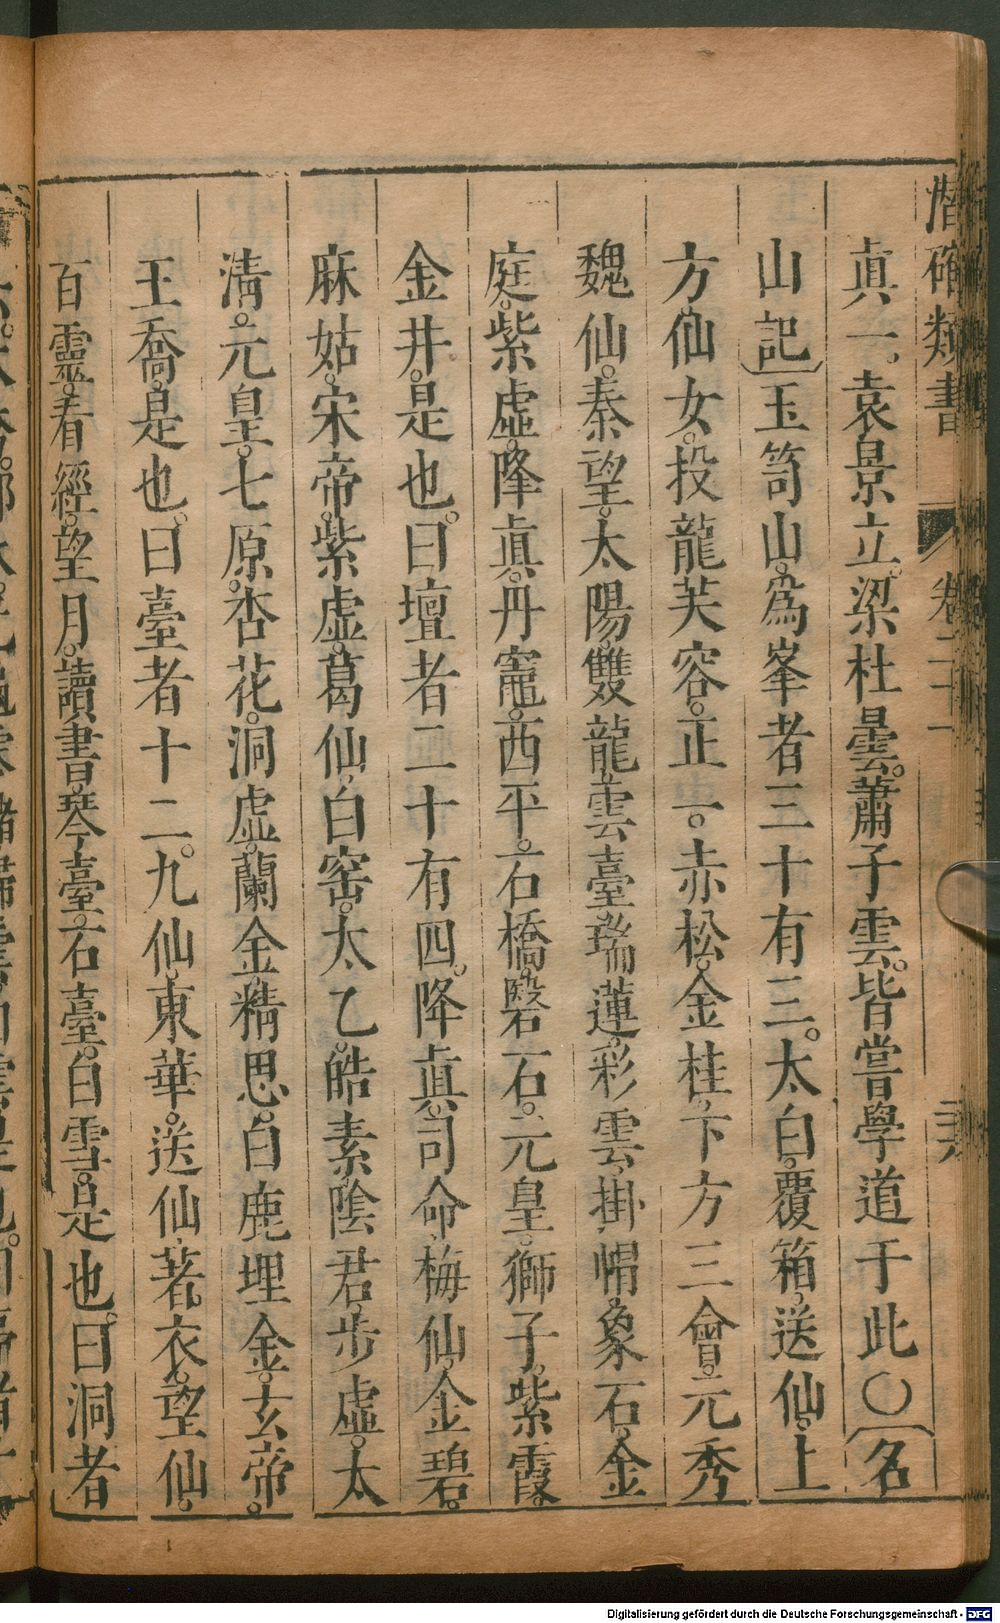 潛確類書 卷二十一 二六
眞一。袁景立。梁杜曇。蕭子雲。皆嘗學道于此〇〔名
山記〕玉笥山。爲峯者三十有三。太白。覆箱。送仙。上
方。仙女。投龍。芙容。正一。赤松。金桂。下方。三會。元秀
魏仙。秦望。太陽。雙龍。雲臺。瑞蓮。彩雲。掛帽。象石。金
庭。紫虛。降眞。丹竈。西平。石橋。礐石。元皇。獅子。紫霞。
金井。是也。曰壇者二十有四。降眞。司命。梅仙。金碧。
麻姑。宋帝。紫虛。葛仙。白窑。太乙。皓素。陰君。步虛。太
淸。元皇。七原。杏花。洞虛。蘭金。精思。白鹿。埋金。玄帝。
王喬。是也。曰臺者十二。九仙。東華。送仙。著衣。望仙。
百靈。看經。望月。讀書。琴臺。石臺。白雪。是也。曰洞者
Digitalisierung gefördert durch die Deutsche Forschungsgemeinschaft - DFG